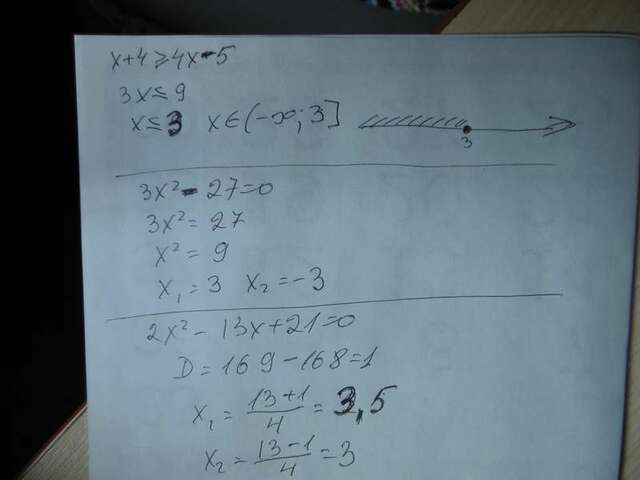 x+4≥4x-5
3x≤9
x≤3 x∈(-∞;3]
3
3x²-27=0
3x²=27
x²=9
x₁=3 x₂=-3
2x²-13x+21=0
D=169-168=1
x₁=(13+1)/4=3,5
x₂=(13-1)/4=3